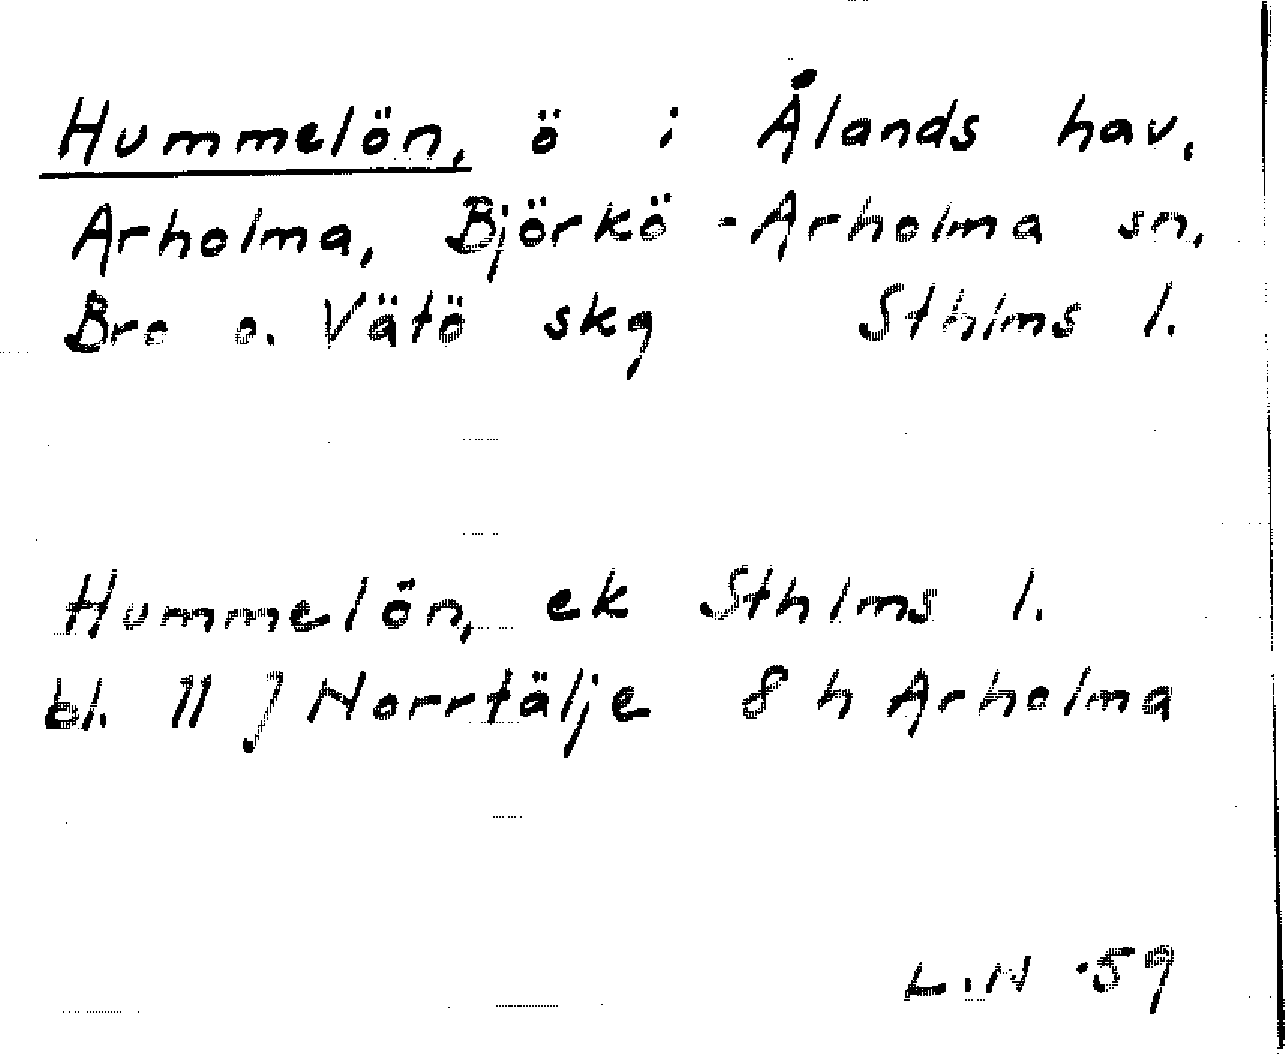 Hummelön, ö i Ålands hav.
Arholma, Björkö-Arholma sn,
Bro o. Vätö skg Sthlms l.
Hummelön, ek Sthlms l.
bl. 11 J Norrtälje 8 h Arholma
L.N -59